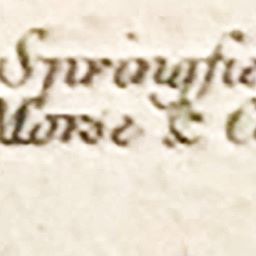 Springfie
Morse & C